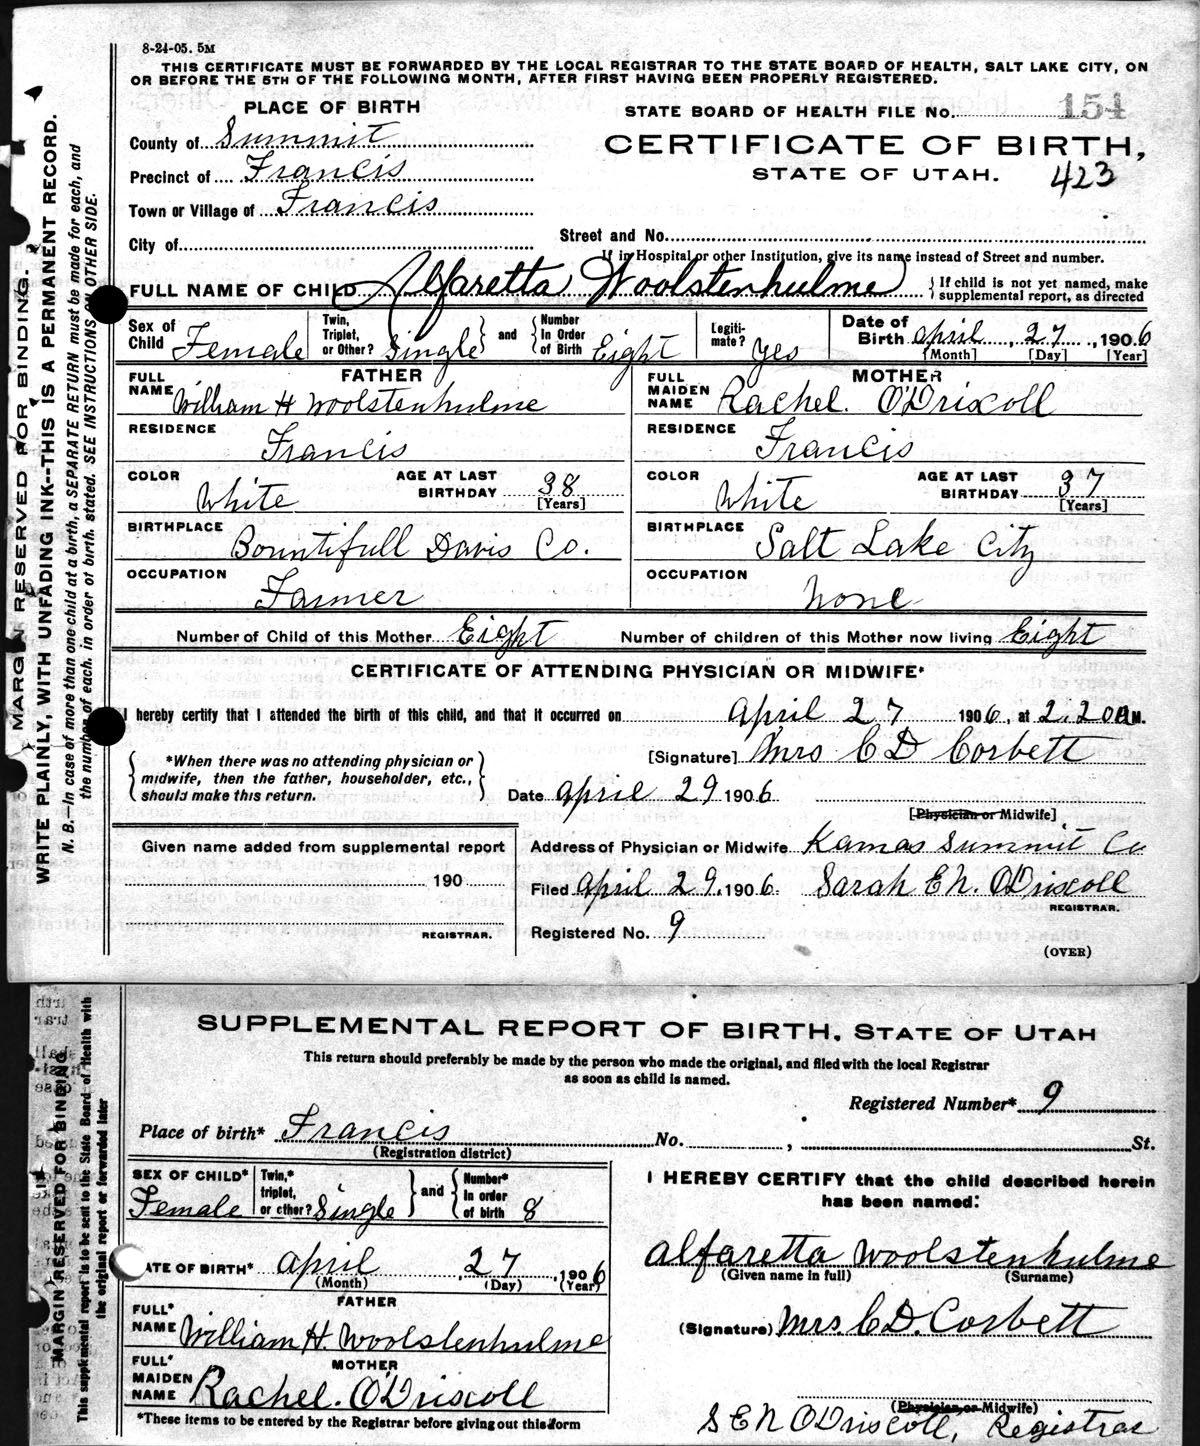 8-24-05. 5M
THIS CERTIFICATE MUST BE FORWARDED BY THE LOCAL REGISTRAR TO THE STATE BOARD OF HEALTH, SALT LAKE CITY, ON
OR BEFORE THE 5TH OF THE FOLLOWING MONTH, AFTER FIRST HAVING BEEN PROPERLY REGISTERED.
MARGIN RESERVED FOR BINDING.
WRITE PLAINLY, WITH UNFADING INK--THIS IS A PERMANENT RECORD.
N. B.—In case of more than one child at a birth, a SEPARATE RETURN must be made for each, and
the number of each, in order of birth, stated. SEE INSTRUCTIONS ON OTHER SIDE.
PLACE OF BIRTH
STATE BOARD OF HEALTH FILE No. 154
County of Summit
CERTIFICATE OF BIRTH,
STATE OF UTAH. 423
Precinct of Francis
Town or Village of Francis
City of
Street and No.
If in Hospital or other Institution, give its name instead of Street and number.
FULL NAME OF CHILD Alfaretta Woolstenhulme
If child is not yet named, make
supplemental report, as directed
Sex of Child Female
Twin, Triplet, or Other? Single and Number In Order of Birth Eight
Legiti-mate? yes
Date of Birth April 27, 1906
[Month] [Day] [Year]
FATHER
FULL NAME William H Woolstenhulme
MOTHER
FULL MAIDEN NAME Rachel. O'Driscoll
RESIDENCE Francis
RESIDENCE Francis
COLOR White
AGE AT LAST BIRTHDAY 38 [Years]
COLOR White
AGE AT LAST BIRTHDAY 37 [Years]
BIRTHPLACE Bountifull Davis Co.
BIRTHPLACE Salt Lake City
OCCUPATION Farmer
OCCUPATION None
Number of Child of this Mother Eight
Number of children of this Mother now living Eight
CERTIFICATE OF ATTENDING PHYSICIAN OR MIDWIFE*
I hereby certify that I attended the birth of this child, and that it occurred on April 27 1906, at 2.20 M.
*When there was no attending physician or
midwife, then the father, householder, etc.,
should make this return.
[Signature] Mrs C D Corbett
Date April 29 1906
[Physician or Midwife]
Given name added from supplemental report
190
REGISTRAR.
Address of Physician or Midwife Kamas Summit Co
Filed April 29. 1906. Sarah E N. O'Driscoll
REGISTRAR.
Registered No. 9
(OVER)
MARGIN RESERVED FOR BINDING
This supplemental report is to be sent to the State Board of Health with
the original report or forwarded later
SUPPLEMENTAL REPORT OF BIRTH, STATE OF UTAH
This return should preferably be made by the person who made the original, and filed with the local Registrar
as soon as child is named.
Registered Number* 9
Place of birth* Francis No. , St.
(Registration district)
SEX OF CHILD* Female
Twin,* triplet, or other? Single and Number* in order of birth 8
DATE OF BIRTH* April 27, 1906
(Month) (Day) (Year)
FATHER
FULL* NAME William H. Woolstenhulme
MOTHER
FULL* MAIDEN NAME Rachel. O'Driscoll
*These items to be entered by the Registrar before giving out this form
I HEREBY CERTIFY that the child described herein
has been named:
Alfaretta Woolstenhulme
(Given name in full) (Surname)
(Signature) Mrs. C D. Corbett
(Physician or Midwife)
S E N O'Driscoll, Registrar